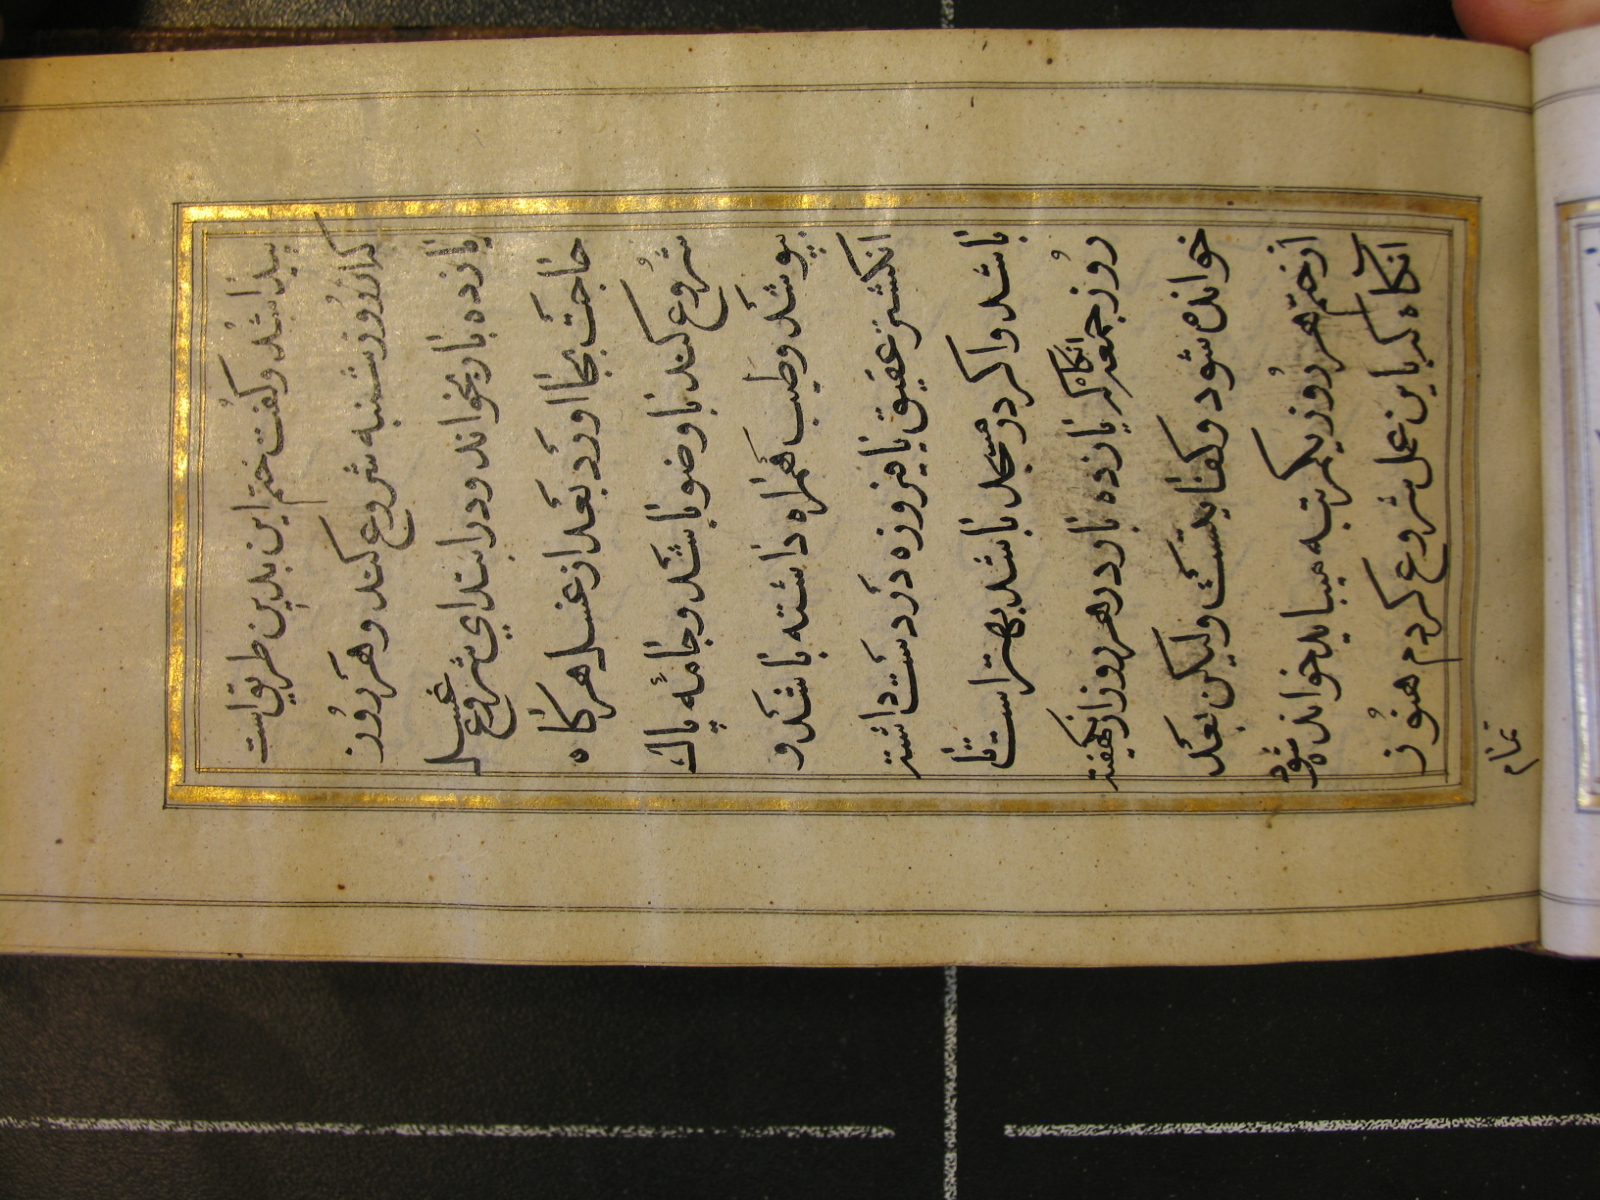 پیدا شد و کفت ختم این بدین طریق است
که از روز شنبه شروع کند و هر روز
یازده بار بخواند و در ابتدای شروع غسل
حاجت بجا اورد بعد از غسل هر کاه
شروع کند با وضو باشد و جامهٔ پاک
بپوشد و طیب همراه داشته باشد و
انکشتر عقیق یا فیروزه در دست داشته
باشد و اکر در مسجد باشد بهتر است تا
روز جمعه انکاه که یازده بار در هر روز از نکهفته
خوانده شود و کفایتست ولیکن بعد
از ختم هر روز یکمرتبه میباید خوانده شود
انکاه که باین عمل شروع کردم هنوز
تمام